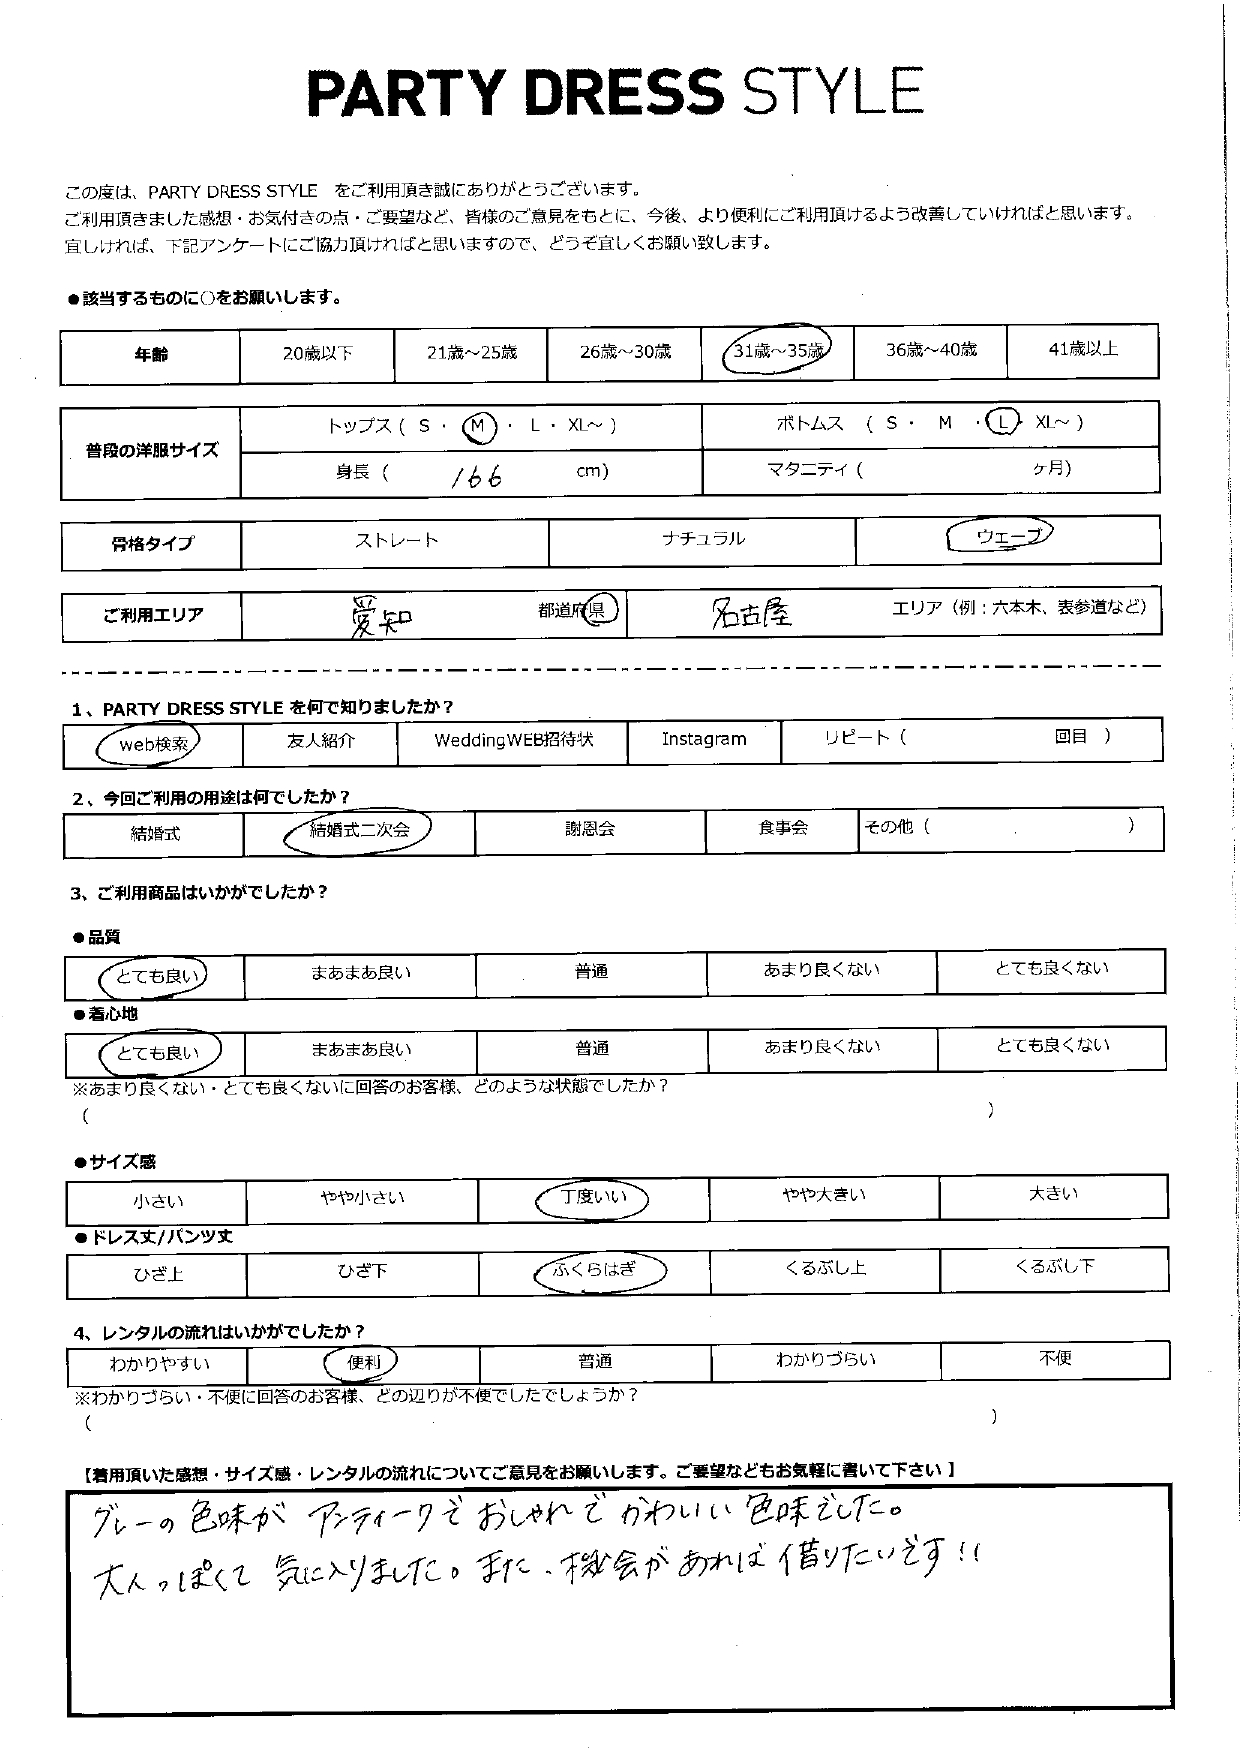 PARTY DRESS STYLE
この度は、PARTY DRESS STYLE をご利用頂き誠にありがとうございます。
ご利用頂きました感想・お気付きの点・ご要望など、皆様のご意見をもとに、今後、より便利にご利用頂けるよう改善していければと思います。
宜しければ、下記アンケートにご協力頂ければと思いますので、どうぞ宜しくお願い致します。
●該当するものに○をお願いします。
年齢 20歳以下 21歳～25歳 26歳～30歳 31歳～35歳 36歳～40歳 41歳以上
普段の洋服サイズ トップス ( S ・ M ・ L ・ XL～ ) ボトムス ( S ・ M ・ L ・ XL～ )
身長 ( 166 cm) マタニティ ( ヶ月)
骨格タイプ ストレート ナチュラル ウェーブ
ご利用エリア 愛知 都道府県 名古屋 エリア（例：六本木、表参道など）
1、PARTY DRESS STYLE を何で知りましたか？
web検索 友人紹介 WeddingWEB招待状 Instagram リピート ( 回目 )
2、今回ご利用の用途は何でしたか？
結婚式 結婚式二次会 謝恩会 食事会 その他 ( )
3、ご利用商品はいかがでしたか？
●品質
とても良い まあまあ良い 普通 あまり良くない とても良くない
●着心地
とても良い まあまあ良い 普通 あまり良くない とても良くない
※あまり良くない・とても良くないに回答のお客様、どのような状態でしたか？
( )
●サイズ感
小さい やや小さい 丁度いい やや大きい 大きい
●ドレス丈/パンツ丈
ひざ上 ひざ下 ふくらはぎ くるぶし上 くるぶし下
4、レンタルの流れはいかがでしたか？
わかりやすい 便利 普通 わかりづらい 不便
※わかりづらい・不便に回答のお客様、どの辺りが不便でしたでしょうか？
( )
【着用頂いた感想・サイズ感・レンタルの流れについてご意見をお願いします。ご要望などもお気軽に書いて下さい】
グレーの色味がアンティークでおしゃれでかわいい色味でした。
大人っぽくて気に入りました。また、機会があれば借りたいです!!